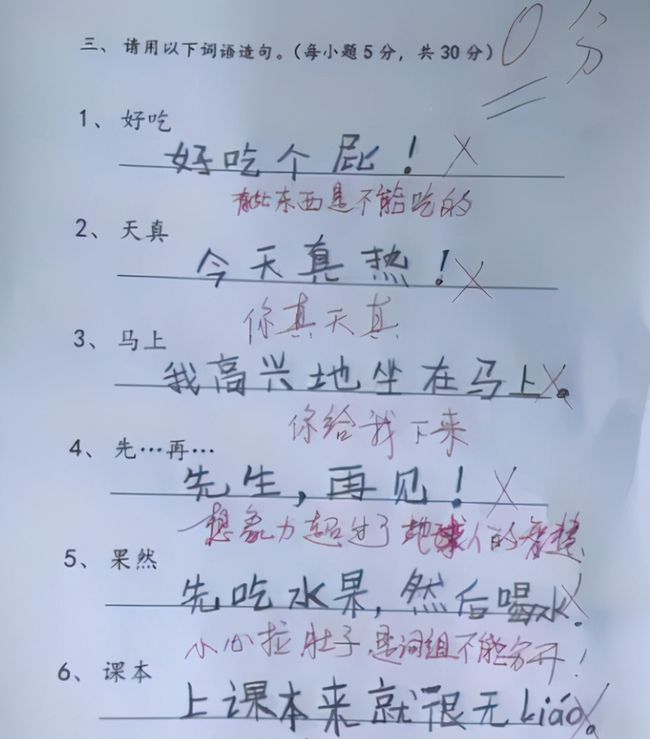 三、请用以下词语造句。（每小题5分，共30分）
0分
1、好吃
好吃个屁！
有些东西是不能吃的
2、天真
今天真热！
你真天真
3、马上
我高兴地坐在马上。
你给我下来
4、先…再…
先生，再见！
想象力超过了地球人的智慧
5、果然
先吃水果，然后喝水。
小心拉肚子，是词组不能分开！
6、课本
上课本来就很无liáo。